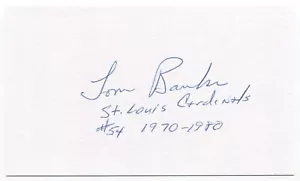 Tom Banks
St. Louis Cardinals
#54 1970-1980